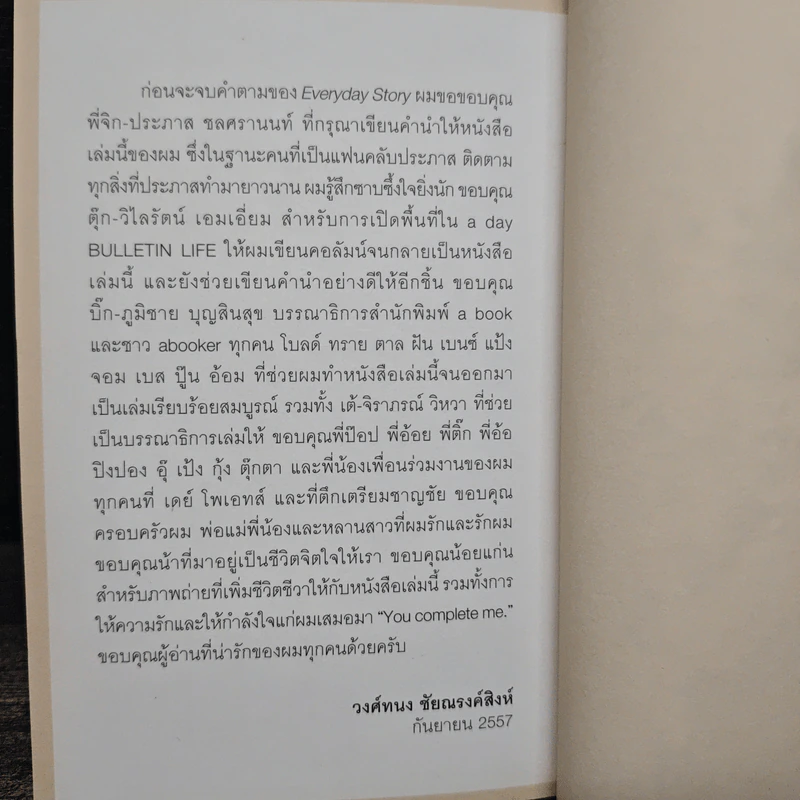 ก่อนจะจบคำตามของ Everyday Story ผมขอขอบคุณ
พี่จิก-ประภาส ชลศรานนท์ ที่กรุณาเขียนคำนำให้หนังสือ
เล่มนี้ของผม ซึ่งในฐานะคนที่เป็นแฟนคลับประภาส ติดตาม
ทุกสิ่งที่ประภาสทำมายาวนาน ผมรู้สึกซาบซึ้งใจยิ่งนัก ขอบคุณ
ตุ๊ก-วิไลรัตน์ เอมเอี่ยม สำหรับการเปิดพื้นที่ใน a day
BULLETIN LIFE ให้ผมเขียนคอลัมน์จนกลายเป็นหนังสือ
เล่มนี้ และยังช่วยเขียนคำนำอย่างดีให้อีกชิ้น ขอบคุณ
บิ๊ก-ภูมิชาย บุญสินสุข บรรณาธิการสำนักพิมพ์ a book
และชาว abooker ทุกคน โบลด์ ทราย ตาล ฝัน เบนซ์ แป้ง
จอม เบส ปุ๊น อ้อม ที่ช่วยผมทำหนังสือเล่มนี้จนออกมา
เป็นเล่มเรียบร้อยสมบูรณ์ รวมทั้ง เต้-จิราภรณ์ วิหวา ที่ช่วย
เป็นบรรณาธิการเล่มให้ ขอบคุณพี่ป๊อป พี่อ้อย พี่ติ๊ก พี่อ้อ
ปิงปอง อุ๊ เป้ง กุ้ง ตุ๊กตา และพี่น้องเพื่อนร่วมงานของผม
ทุกคนที่ เดย์ โพเอทส์ และที่ตึกเตรียมชาญชัย ขอบคุณ
ครอบครัวผม พ่อแม่พี่น้องและหลานสาวที่ผมรักและรักผม
ขอบคุณน้าที่มาอยู่เป็นชีวิตจิตใจให้เรา ขอบคุณน้อยแก่น
สำหรับภาพถ่ายที่เพิ่มชีวิตชีวาให้กับหนังสือเล่มนี้ รวมทั้งการ
ให้ความรักและให้กำลังใจแก่ผมเสมอมา “You complete me.”
ขอบคุณผู้อ่านที่น่ารักของผมทุกคนด้วยครับ
วงศ์ทนง ชัยณรงค์สิงห์
กันยายน 2557